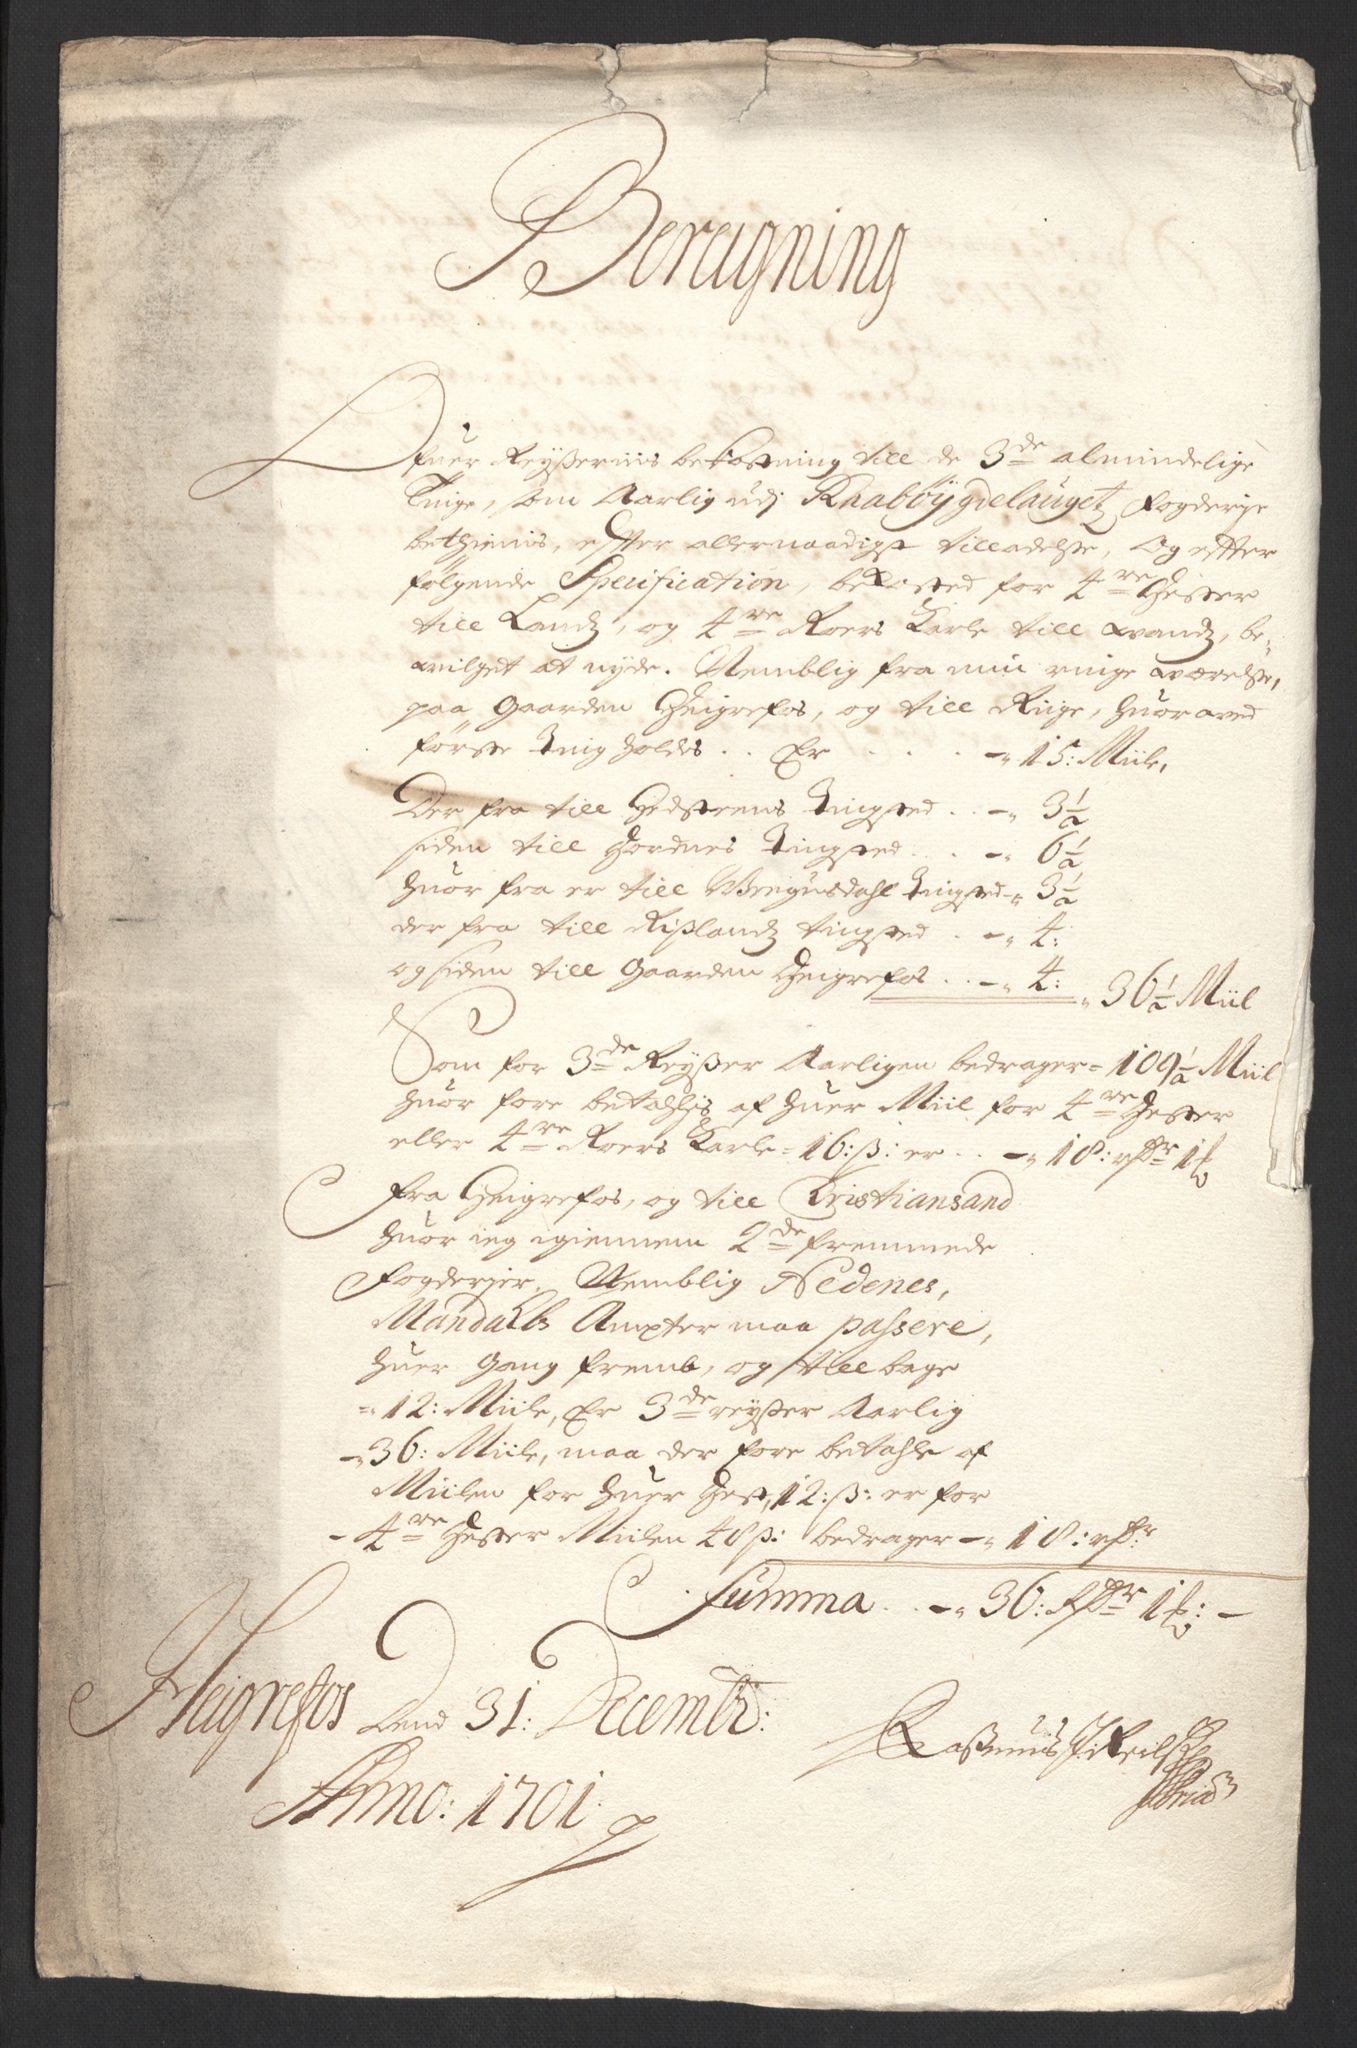 Beregning
Ofuer Reyßernis bekostning till de 3de almindelige
Tinge, som Aarlig udj Raabböÿgdelauget Fogderje
bethienis, efter allernaadigst tilladelse, Og efter
følgende Specification, bekosted for 4re Hester
till Landz, og 4re Roers Karle till wandz, be-
wilget at nyde. Nemblig fra min ringe wærelse,
paa Gaarden Heigrefos, og till Riige, huor wed
første ting holdes . . Er . . . . -" 15: Miile,
Der fra till Hedstrems Tingsted . . -" 3½
siden till Hordnes Tingsted . . . -" 6½
huor fra er till Weigusdahl Tingsted -" 3½
der fra till Rißlandz tingsted . -" 4:
og siden till Gaarden Heigrefos . . -" 4: " 36½ Miil
Som for 3de Reyßer Aarligen bedrager = 109½ Miil
huor fore betahlis af huer Miil for 4re Hester
eller 4re Roers Karle = 16: ß: er . . -" 18: rdr 1 ort
Fra Heigrefos, og till Cristiansand
huor ieg igiennem 2de fremmede
Fogderjer, Nemblig Nedenes,
Mandahls Ampter maa passere,
huer Gang fremb, og tillbage
=12: Miile, Er 3de reyßer Aarlig
-"36: Miile, maa der fore betahle af
Miilen for huer Hest, 12: ß: er for
- 4re Hester Miilen 48 ß: bedrager -" 18: rdr:
Summa . . -" 36: Rdr 1 ort: -
Heigrefos Dend 31: Decembr:
Anno: 1701:
Raßmus